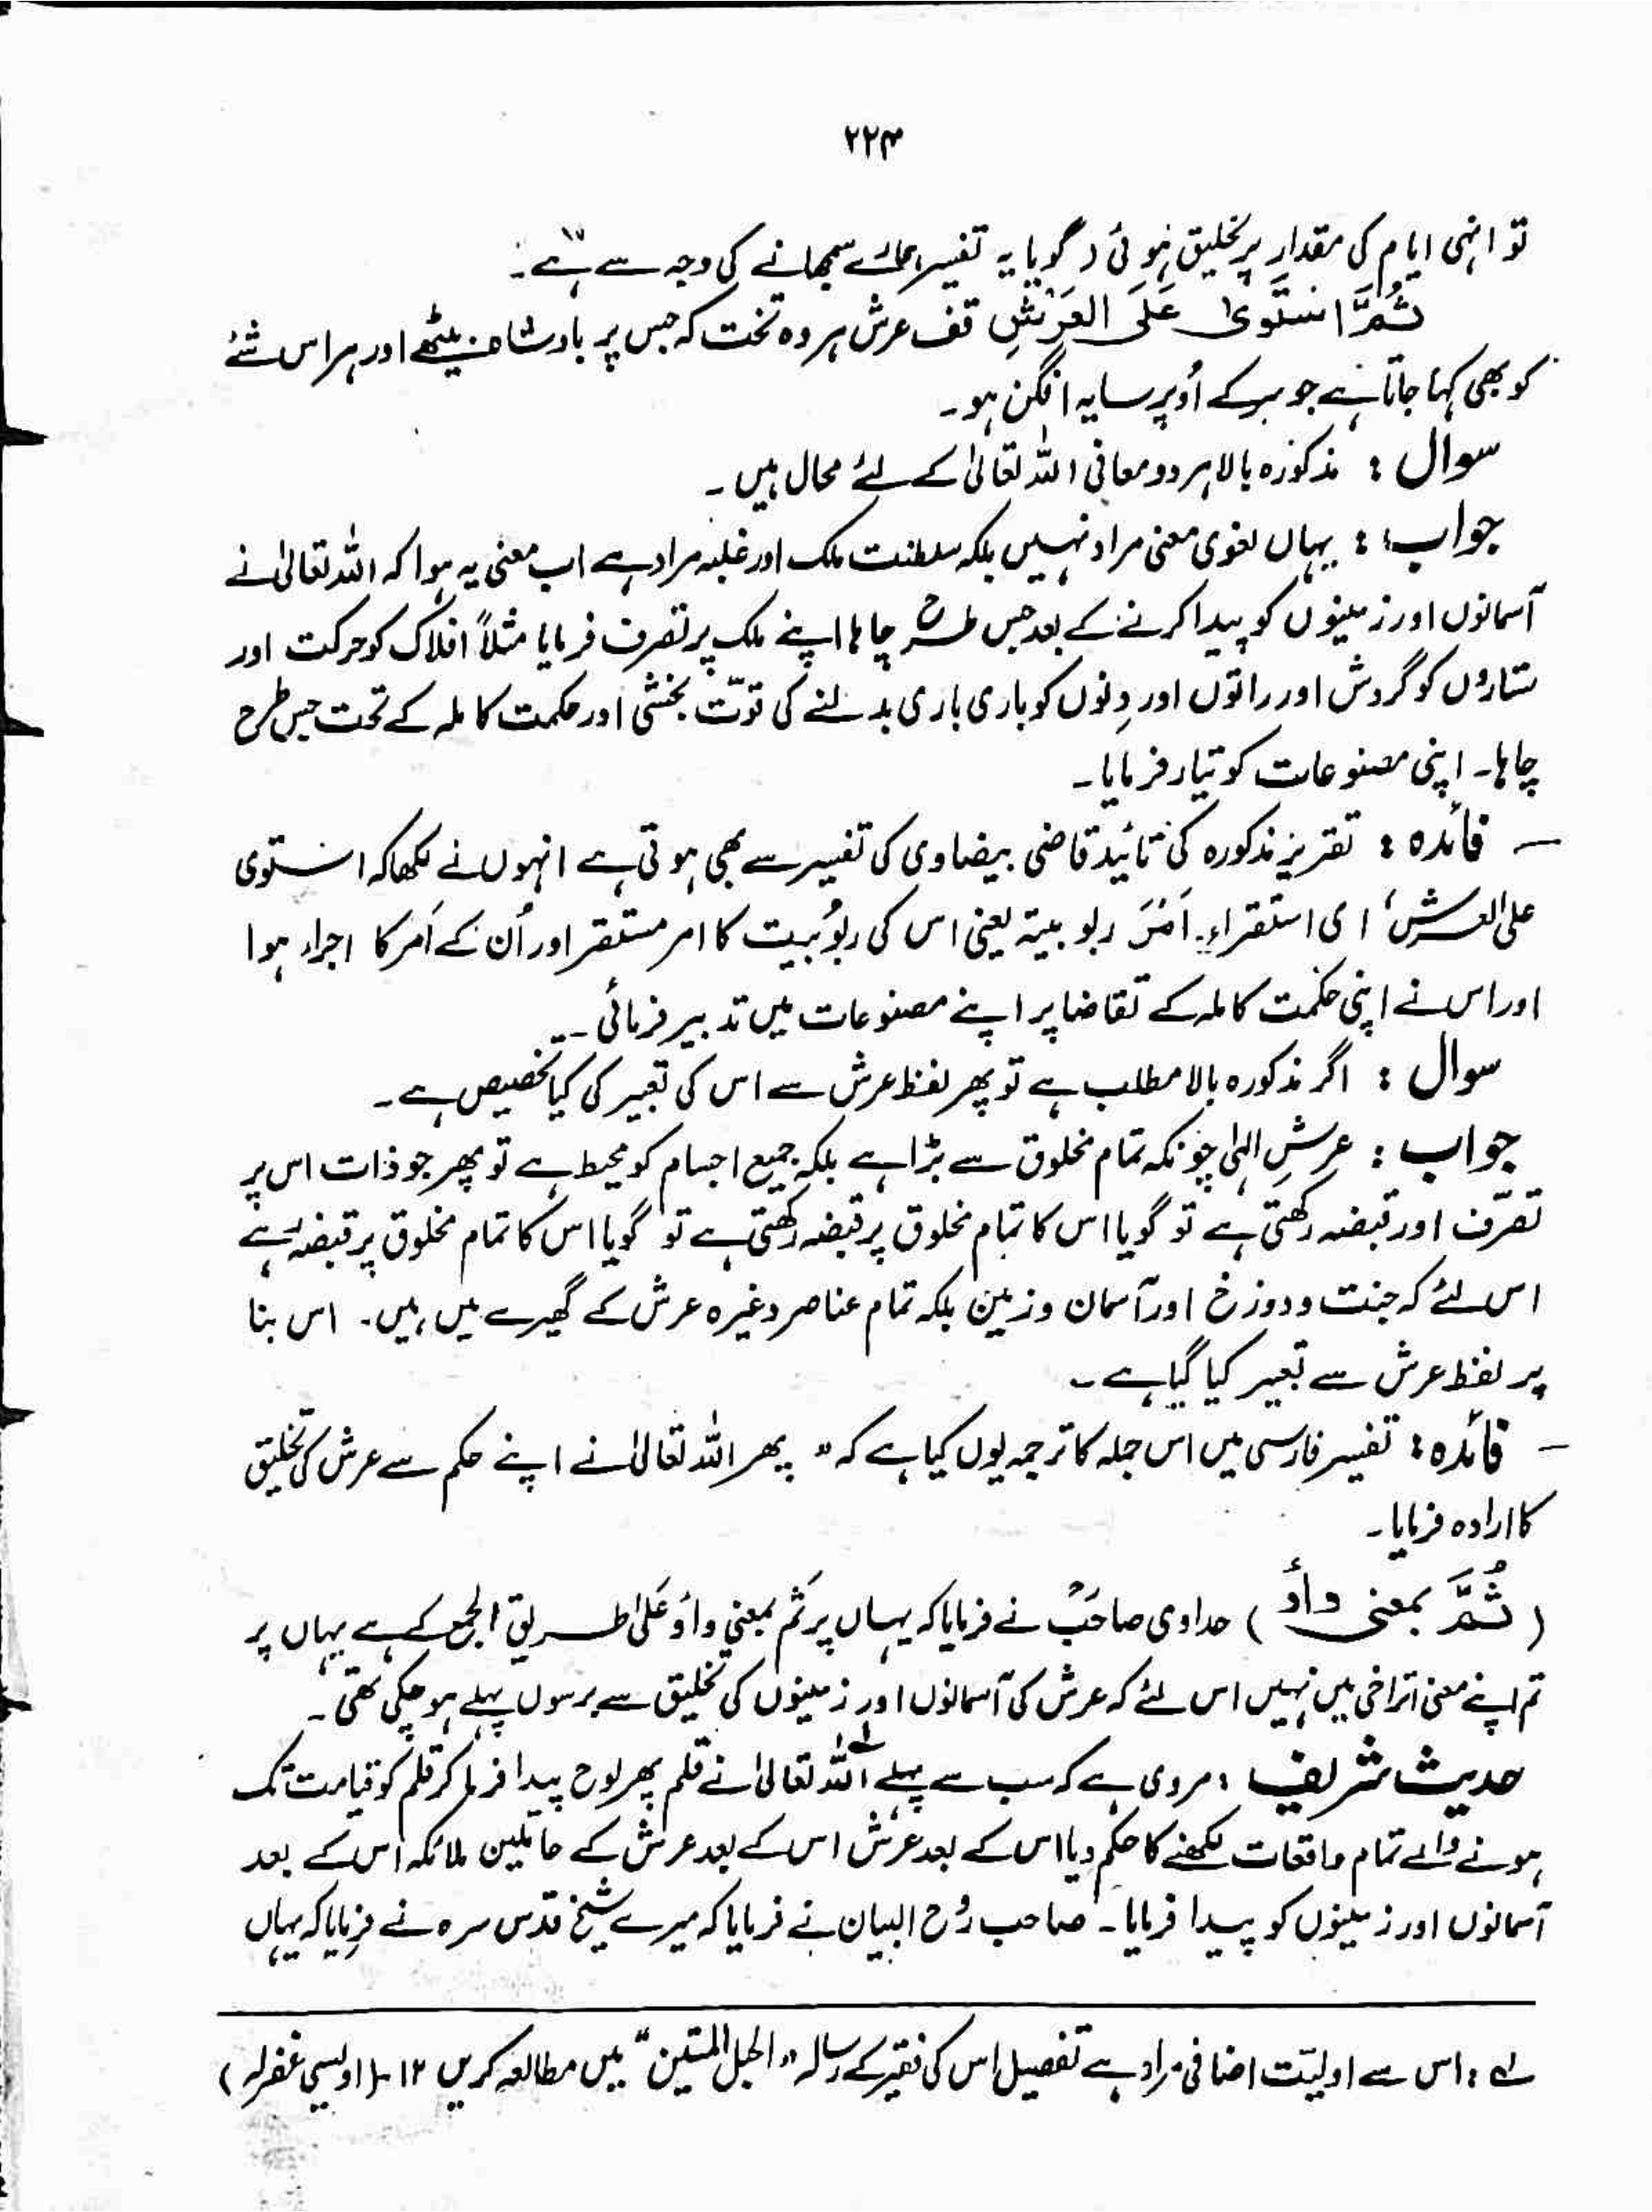 ۲۲۴
تو انہی ایام کی مقدار پر تخلیق ہوئی د گویا یہ تفسیر ہمارے سمجھانے کی وجہ سے ہے۔
ثُمَّ اسْتَوٰی عَلَی الْعَرْشِ قف عرش ہر وہ تخت کہ جس پر بادشاہ بیٹھے اور ہر اس شئے
کو بھی کہا جاتا ہے جو سر کے اُوپر سایہ افگن ہو۔
سوال : مذکورہ بالا ہر دو معانی اللہ تعالیٰ کے لئے محال ہیں۔
جواب : یہاں لغوی معنی مراد نہیں بلکہ سلطنت ملک اور غلبہ مراد ہے اب معنی یہ ہوا کہ اللہ تعالیٰ نے
آسمانوں اور زمینوں کو پیدا کرنے کے بعد جس طرح چاہا اپنے ملک پر تصرف فرمایا مثلاً افلاک کو حرکت اور
ستاروں کو گردش اور راتوں اور دِنوں کو باری باری بدلنے کی قوّت بخشی اور حکمت کاملہ کے تحت جس طرح
چاہا۔ اپنی مصنوعات کو تیار فرمایا۔
— فائدہ : تقریر مذکورہ کی تائید قاضی بیضاوی کی تفسیر سے بھی ہوتی ہے انہوں نے لکھا کہ استوی
علی العرش، ای استقراء اَمْرَ ربوبیتہ یعنی اس کی ربوُبیت کا امر مستقر اور اُن کے اَمر کا اجراء ہوا
اور اس نے اپنی حکمت کاملہ کے تقاضا پر اپنے مصنوعات میں تدبیر فرمائی۔۔
سوال : اگر مذکورہ بالا مطلب ہے تو پھر لفظ عرش سے اس کی تعبیر کی کیا تخصیص ہے۔
جواب : عرشِ الٰہی چونکہ تمام مخلوق سے بڑا ہے بلکہ جمیع اجسام کو محیط ہے تو پھر جو ذات اس پر
تصرّف اور قبضہ رکھتی ہے تو گویا اس کا تمام مخلوق پر قبضہ رکھتی ہے تو گویا اس کا تمام مخلوق پر قبضہ ہے
اس لئے کہ جنت و دوزخ اور آسمان و زمین بلکہ تمام عناصر وغیرہ عرش کے گھیرے میں ہیں۔ اس بنا
پر لفظ عرش سے تعبیر کیا گیا ہے۔
— فائدہ : تفسیر فارسی میں اس جملہ کا ترجمہ یوں کیا ہے کہ " پھر اللہ تعالیٰ نے اپنے حکم سے عرش کی تخلیق
کا ارادہ فرمایا۔
( ثُمَّ بمعنی واؤ ) حدادی صاحبؒ نے فرمایا کہ یہاں پر ثُم بمعنی واؤ عَلیٰ طریق الجمع کے ہے یہاں پر
ثم اپنے معنی تراخی میں نہیں اس لئے کہ عرش کی آسمانوں اور زمینوں کی تخلیق سے برسوں پہلے ہو چکی تھی۔
حدیث شریف : مروی ہے کہ سب سے پہلے لہ اللہ تعالیٰ نے قلم پھر لوح پیدا فرما کر قلم کو قیامت تک
ہونے والے تمام واقعات لکھنے کا حکم دیا اس کے بعد عرش اس کے بعد عرش کے حاملین ملائکہ اس کے بعد
آسمانوں اور زمینوں کو پیدا فرمایا۔ صاحب رُوح البیان نے فرمایا کہ میرے شیخ قدس سرہ نے فرمایا کہ یہاں
لے : اس سے اولیّت اضافی مراد ہے تفصیل اس کی فقیر کے رسالہ "الحبل المتین" میں مطالعہ کریں ۱۲ ۔ (اویسی غفرلہ)